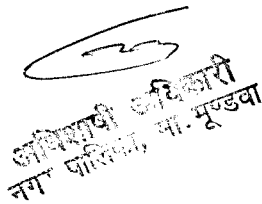 अधिशाषी अधिकारी
नगर पालिका, मा. मूण्डवा